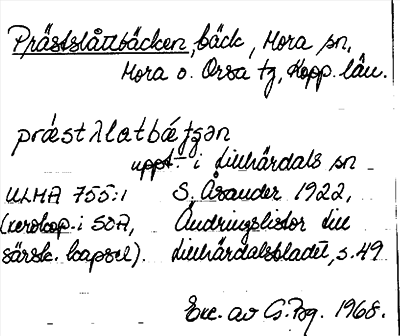 Prästslåttbäcken, bäck, Mora sn,
Mora o. Orsa tg, Kopp. län.
præstλlatbætʒən
uppt. i Lillhärdals sn
ULMA 755:1 S. Åsander 1922,
(xerokop. i SOA, Ändringslistor till
särsk. kapsel). Lillhärdalsbladet, s. 49
Exc. av G. Pog. 1968.